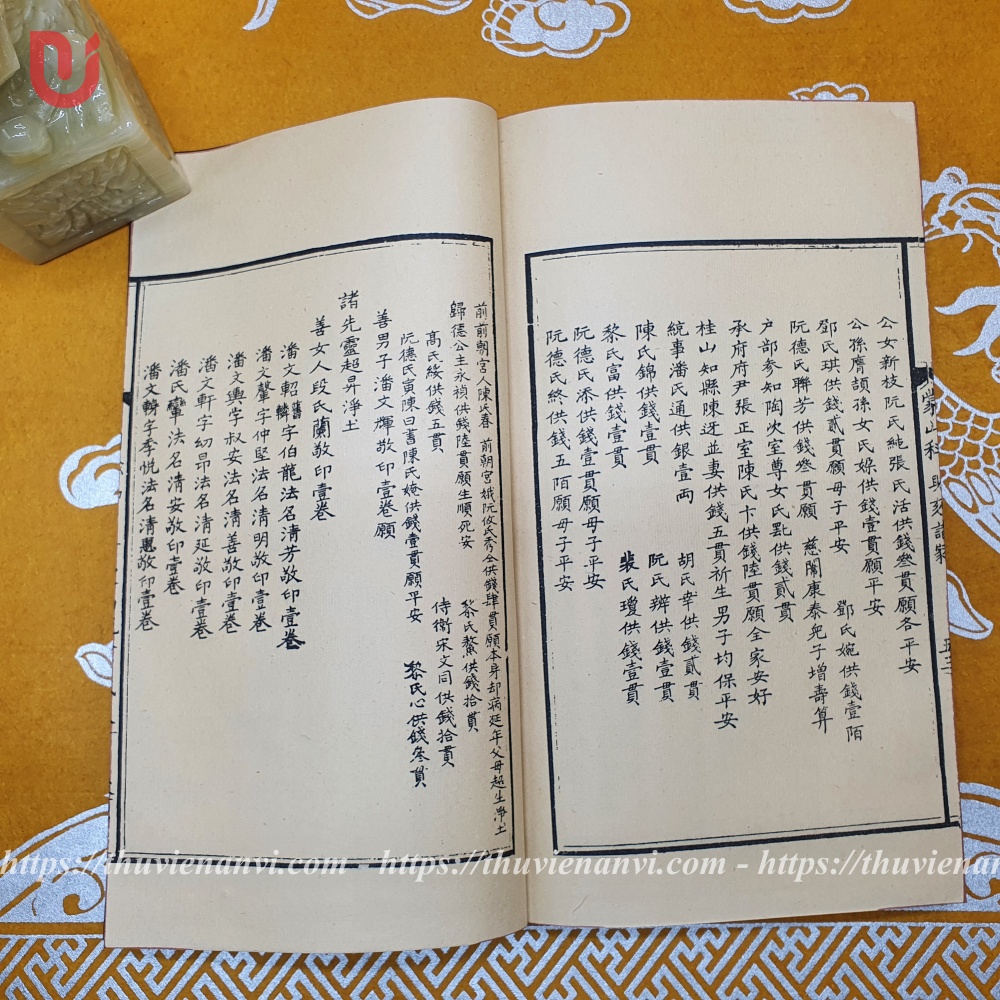 公女新枝阮氏純張氏活供錢叄貫願各平安
公孫膺頡孫女氏婇供錢壹貫願平安
鄧氏琪供錢貳貫願母子平安 鄧氏婉供錢壹陌
阮德氏聯芳供錢叄貫願 慈闈康泰兒子增壽算
户部参知陶次室尊女氏㸃供錢貳貫
承府府尹張正室陳氏卞供錢陸貫願全家安好
桂山知縣陳迓並妻供錢五貫祈生男子均保平安
統事潘氏通供銀壹両 胡氏幸供錢貳貫
陳氏錦供錢壹貫 阮氏辨供錢壹貫
黎氏富供錢壹貫 裴氏瓊供錢壹貫
阮德氏添供錢壹貫願母子平安
阮德氏終供錢五陌願母子平安
前前朝宮人陳氏春 前朝宮娥阮攸氏秀仝供錢肆貫願本身却病延年父母超生淨土
歸德公主永禎供錢陸貫願生順死安 黎氏鰲供錢拾貫
髙氏綏供錢五貫 侍衛宋文同供錢拾貫
阮德氏寅陳曰書陳氏婄供錢壹貫願平安 黎氏心供錢叄貫
善男子潘文輝敬印壹卷願
諸先靈超昇淨土
善女人段氏蘭敬印壹卷
潘文軺字伯龍法名清芳敬印壹卷
潘文鞶字仲堅法名清明敬印壹卷
潘文輿字叔安法名清善敬印壹卷
潘文軒字幼昂法名清延敬印壹卷
潘氏鸞法名清安敬印壹卷
潘文轎字季悦法名清惠敬印壹卷
蒙山科
https://thuvienanvi.com - https://thuvienanvi.com - https://thuvienanvi